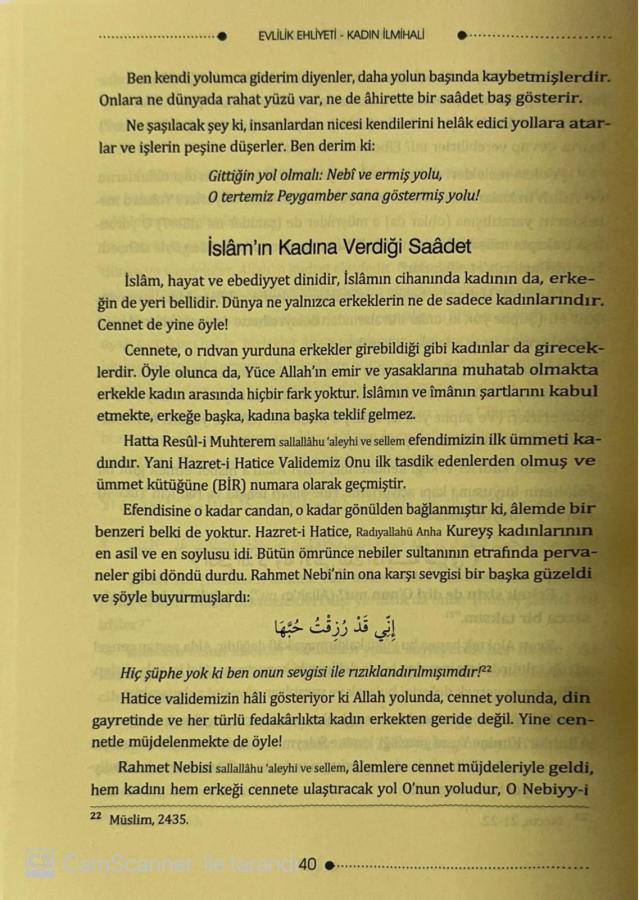 EVLİLİK EHLİYETİ - KADIN İLMİHALİ
Ben kendi yolumca giderim diyenler, daha yolun başında kaybetmişlerdir.
Onlara ne dünyada rahat yüzü var, ne de âhirette bir saâdet baş gösterir.
Ne şaşılacak şey ki, insanlardan nicesi kendilerini helâk edici yollara atar-
lar ve işlerin peşine düşerler. Ben derim ki:
Gittiğin yol olmalı: Nebî ve ermiş yolu,
O tertemiz Peygamber sana göstermiş yolu!
İslâm'ın Kadına Verdiği Saâdet
İslâm, hayat ve ebediyyet dinidir, İslâmın cihanında kadının da, erke-
ğin de yeri bellidir. Dünya ne yalnızca erkeklerin ne de sadece kadınlarındır.
Cennet de yine öyle!
Cennete, o rıdvan yurduna erkekler girebildiği gibi kadınlar da girecek-
lerdir. Öyle olunca da, Yüce Allah'ın emir ve yasaklarına muhatab olmakta
erkekle kadın arasında hiçbir fark yoktur. İslâmın ve îmânın şartlarını kabul
etmekte, erkeğe başka, kadına başka teklif gelmez.
Hatta Resûl-i Muhterem sallallâhu 'aleyhi ve sellem efendimizin ilk ümmeti ka-
dındır. Yani Hazret-i Hatice Validemiz Onu ilk tasdik edenlerden olmuş ve
ümmet kütüğüne (BİR) numara olarak geçmiştir.
Efendisine o kadar candan, o kadar gönülden bağlanmıştır ki, âlemde bir
benzeri belki de yoktur. Hazret-i Hatice, Radıyallahü Anha Kureyş kadınlarının
en asil ve en soylusu idi. Bütün ömrünce nebiler sultanının etrafında perva-
neler gibi döndü durdu. Rahmet Nebi'nin ona karşı sevgisi bir başka güzeldi
ve şöyle buyurmuşlardı:
إِنِّي قَدْ رُزِقْتُ حُبَّهَا
Hiç şüphe yok ki ben onun sevgisi ile rızıklandırılmışımdır!²²
Hatice validemizin hâli gösteriyor ki Allah yolunda, cennet yolunda, din
gayretinde ve her türlü fedakârlıkta kadın erkekten geride değil. Yine cen-
netle müjdelenmekte de öyle!
Rahmet Nebisi sallallâhu 'aleyhi ve sellem, âlemlere cennet müjdeleriyle geldi,
hem kadını hem erkeği cennete ulaştıracak yol O'nun yoludur, O Nebiyy-i
22 Müslim, 2435.
CS CamScanner ile tarandı
40